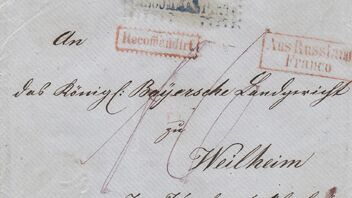 Recomandirt
Aus Russland
Franco
An
das Königl: Bayersche Landgericht
zu
Weilheim